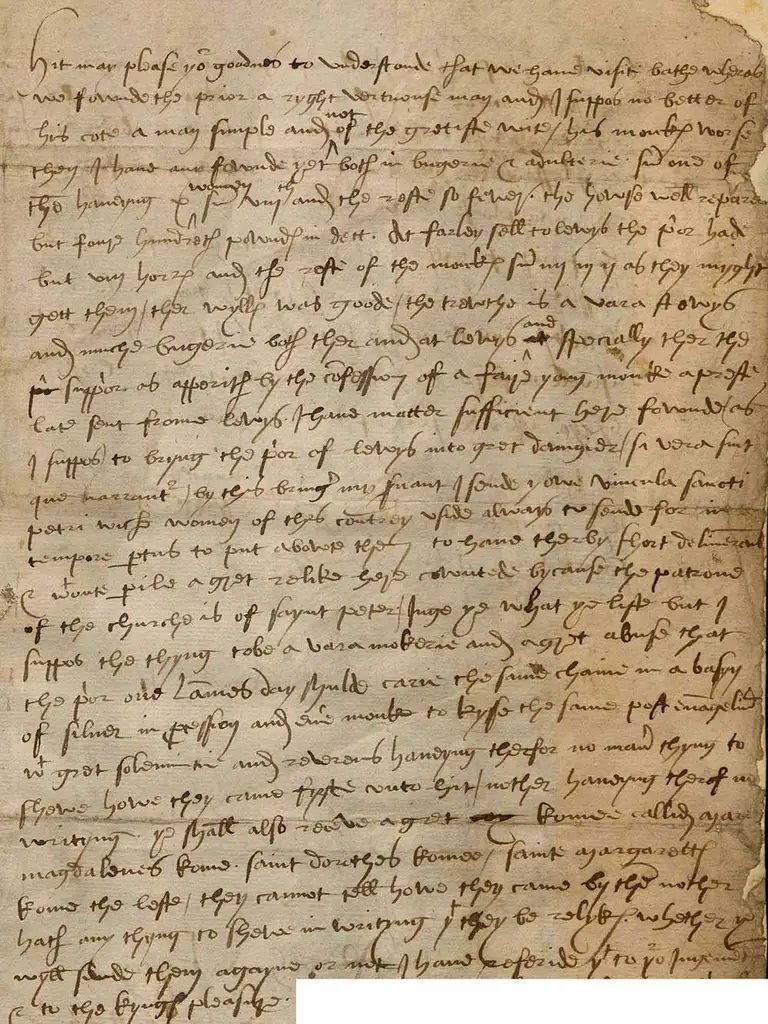 Hit may please yor goodnes to understonde that we have visite bathe wheras
we fownde the prior a ryght vertuouse man and I suppos no better of
his cote a man simple and not of the gretiste wite, his monkes worse
then I have any fownde yet both in bugerie & adulterie sum one of
the havyng x women sum viij th and the reste so fewer. the howse well repare
but foure hundreth powndes in dett. At farley sell to lewys the prior hade
but viij horres and the reste of the monkes sum iiij iij ij as they myght
gett them, ther wyllys was goode, the trewthe is a vara stewys
and muche bugerie both ther and at lewys and specially ther the
supprior as apperith by the confession off a faire yong monke a preste
late sent frome lewys. I have matter sufficient here fownde (as
I suppos) to bryng the prior of lewys into gret daingier, si vera sint
que narrantur, by this bringer my servant I sende yowe vincula sancti
petri wiche women of this contrey uside always to sende for in
tempore partus to put abowte them to have therby short deliverance
& without perile a gret relike here cowntede bycause the patrone
of the churche is of saynt peter, Juge ye what ye liste but I
suppos the thyng to be a vara mokerie and a gret abuse that
the prior one Lammes day shulde carie the same chaine in a basyn
of silver in procession and every monke to kysse the same post evangelium
with gret solemnitie and reverens havyng therfor no maner thyng to
shewe howe they came fyrste unto hit, nether havyng therof in
writyng. ye shall also receve a gret komee callid Mare
magdalenes kome. saint dorothes komee, sainte Margarettes
kome the leste, they cannot tell howe they came by them nother
hath any thyng to shewe in writyng yt they be relykes. whether ye
wyll sende them agayne or not I have referide yt to yor Jugement
& to the kynges pleasure.